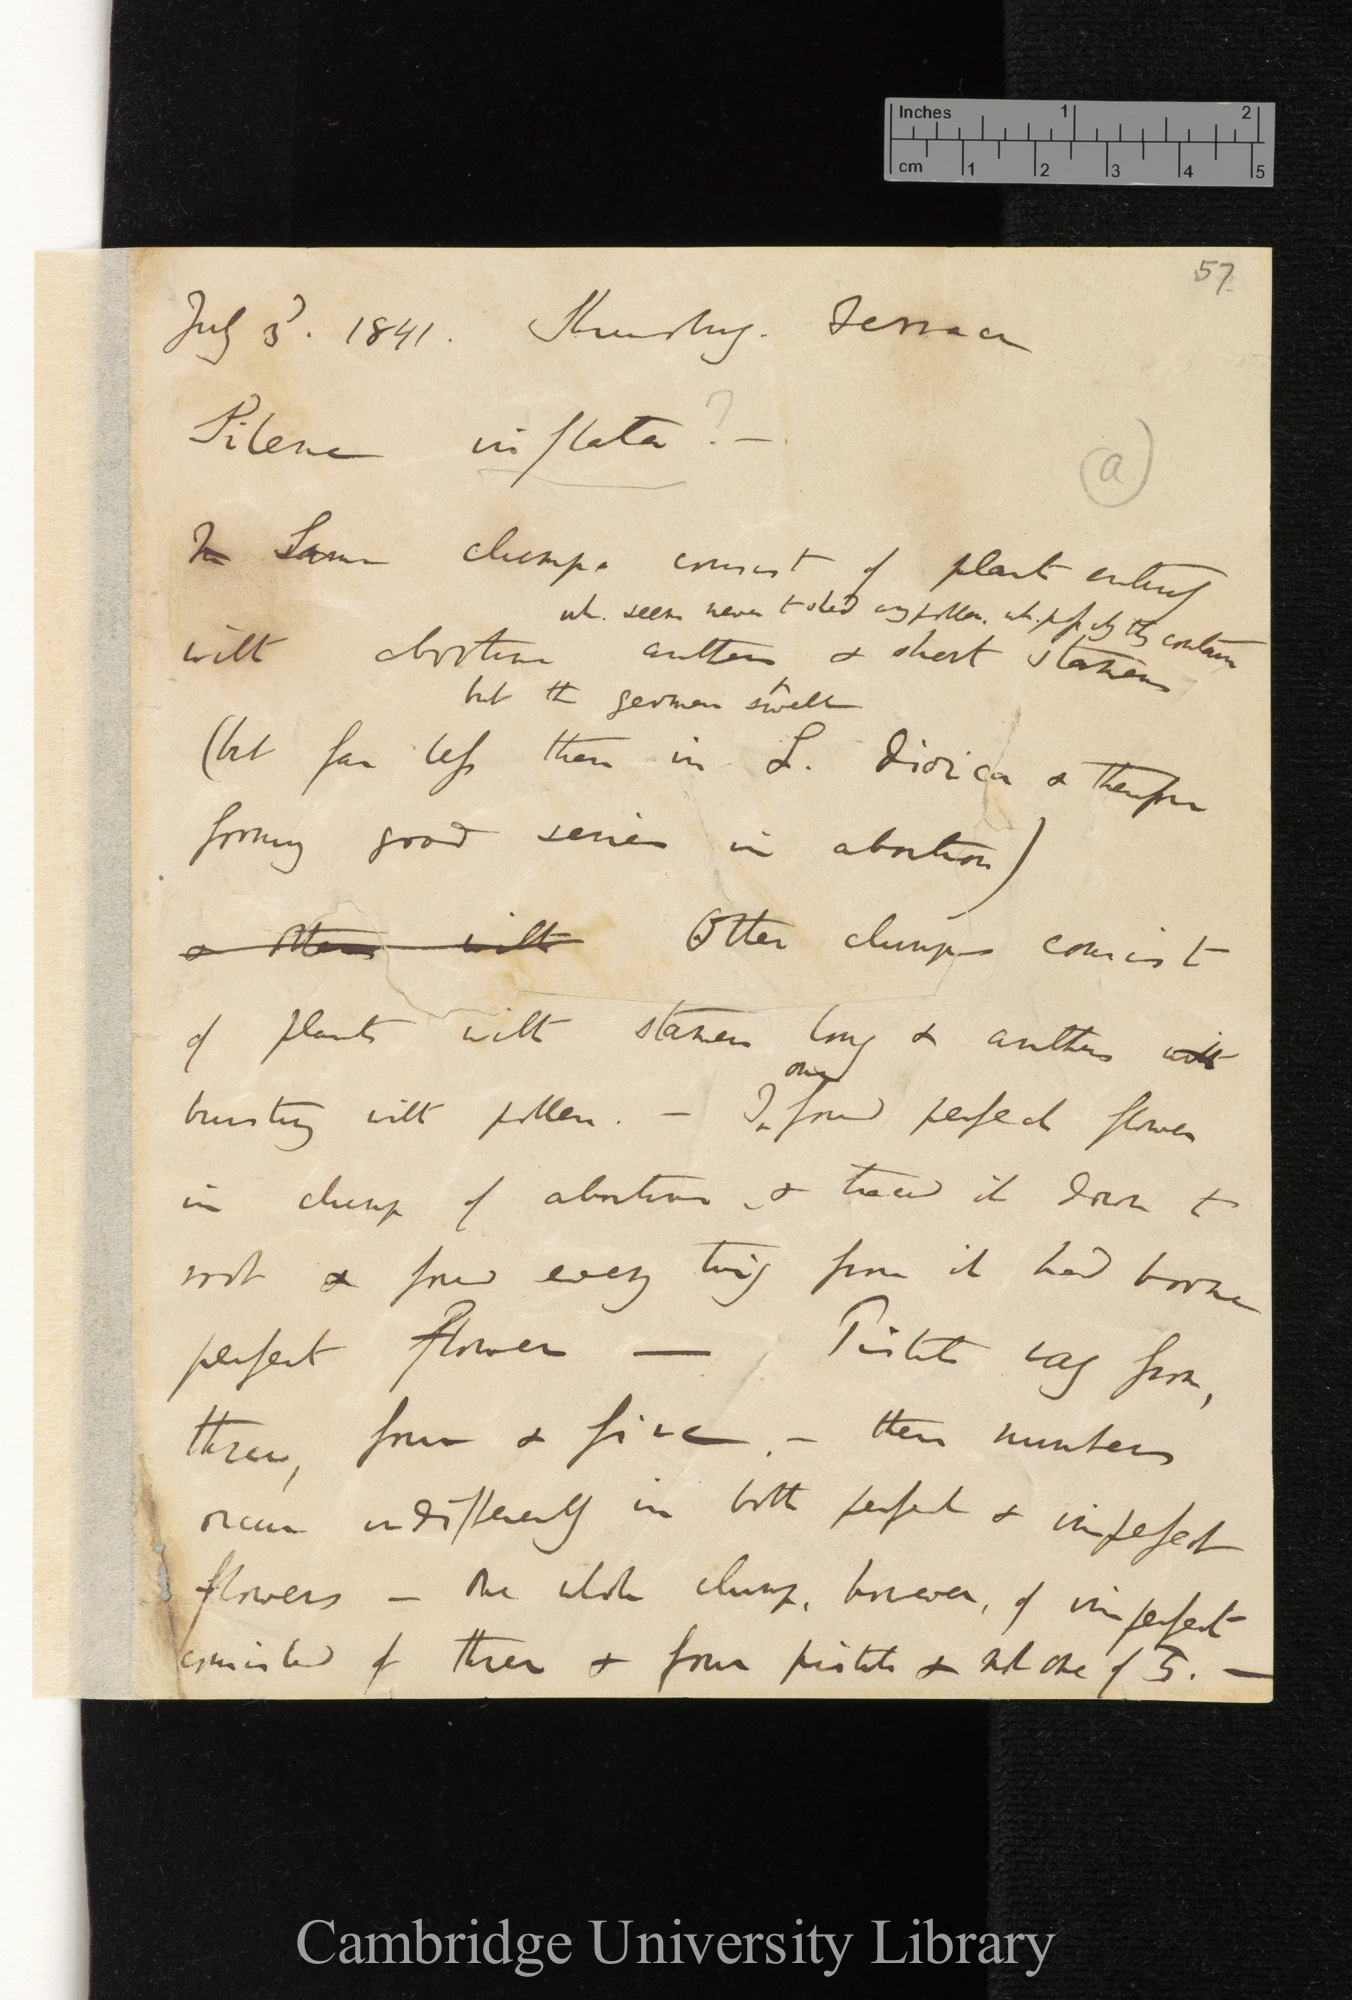 Inches 1 2
cm 1 2 3 4 5
57
July 3d. 1841. Shrewsbury. Terrace
Silene inflata? —
(a)
In Some clumps consist of plants entirely
wh. seem never to shed any pollen. wh. perhaps they contain
with abortive anthers & short stamens
but the germen swells
(but far less than in L. dioica & therefore
forming good series in abortion)
& others with Other clumps consist
of plants with stamens long & anthers with
one
bursting with pollen. — I found perfect flower
in clump of abortive & traced it down to
root & found every twig from it had borne
perfect flower — Pistils vary from,
three, four & five. — these numbers
occur indifferently in both perfect & imperfect
flowers — One whole clump, however, of imperfect
consisted of three & four pistils & not one of 5. —
Cambridge University Library